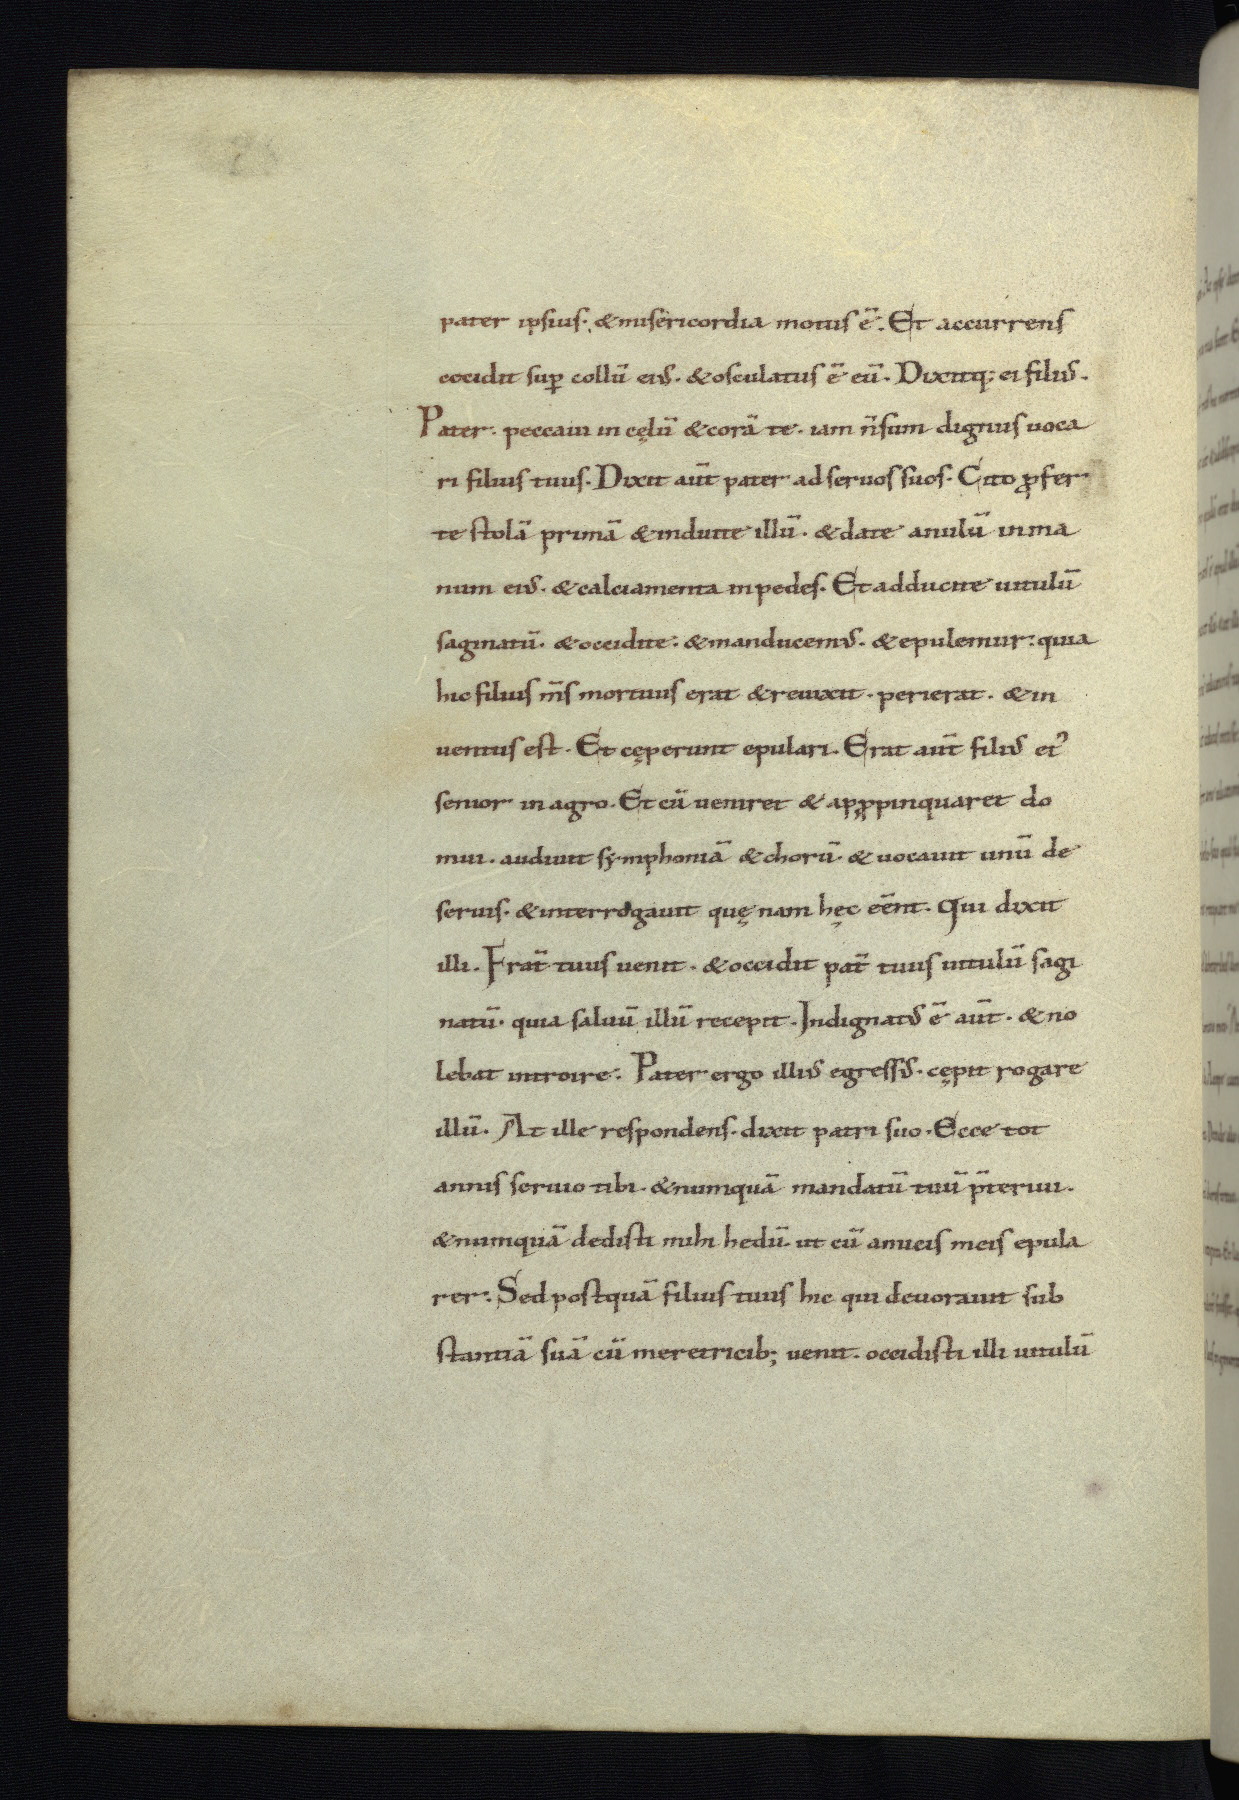 pater ipsius. & misericordia motus ē. Et accurrens
cecidit suꝑ collū eiꝰ. & osculatus ē eū. Dixitq; ei filiꝰ.
Pater. peccaui in cęlū & corā te. iam n̄ sum dignus uoca
ri filius tuus. Dixit aūt pater ad seruos suos. Cito ꝓfer
te stolā primā & induite illū. & date anulū in ma
num eiꝰ. & calciamenta in pedes. Et adducite uitulū
saginatū. & occidite. & manducemꝰ. & epulemur. quia
hic filius m̄s mortuus erat & reuixit. perierat. & in
uentus est. Et cęperunt epulari. Erat aūt filiꝰ eiꝰ
senior in agro. Et cū ueniret & apꝓpinquaret do
mui. audiuit symphoniā & chorū. & uocauit unū de
seruis. & interrogauit quę nam hęc eēnt. Qui dixit
illi. Frat̄ tuus uenit. & occidit pat̄ tuus uitulū sagi
natū. quia saluū illū recepit. Indignatꝰ ē aūt. & no
lebat introire. Pater ergo illiꝰ egressꝰ. cępit rogare
illū. At ille respondens. dixit patri suo. Ecce tot
annis seruio tibi. & numquā mandatū tuū p̄teriui.
& numquā dedisti mihi hedū. ut cū amicis meis epula
rer. Sed postquā filius tuus hic qui deuorauit sub
stantiā suā cū meretricib; uenit. occidisti illi uitulū